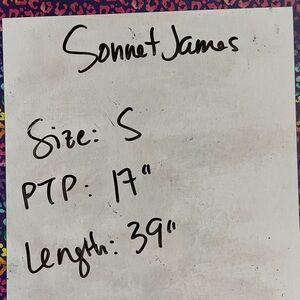 Sonnet James
Size: S
PTP: 17"
Length: 39"